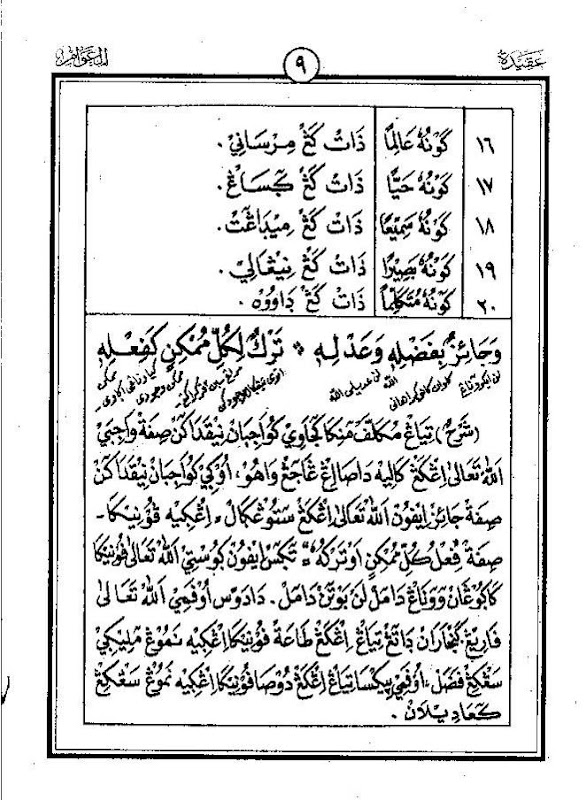 عقيدة ٩ العوام
١٦ كَوْنُهُ عَالِمًا ذَاتْ كَڠْ مِرْسَانِيْ.
١٧ كَوْنُهُ حَيًّا ذَاتْ كَڠْ ڮَسَاڠْ.
١٨ كَوْنُهُ سَمِيْعًا ذَاتْ كَڠْ مِيْدَاڠَتْ.
١٩ كَوْنُهُ بَصِيْرًا ذَاتْ كَڠْ نِيْڠَالِيْ.
٢٠ كَوْنُهُ مُتَكَلِّمًا ذَاتْ كَڠْ داوُوهْ.
وَجَائِزٌ بِفَضْلِهِ وَعَدْلِهِ * تَرْكٌ لِكُلِّ مُمْكِنٍ كَفِعْلِهِ
(شَرْحُ) تِيَاڠْ مُكَلَّفْ مَنِيْكَا كَجَاوِيْ كَوَاجِبَانْ نِيْقَدَاكَنْ صِفَةْ وَاجِبَيْ
اللهْ تَعَالَى اِڠْكَڠْ كَالِيْهْ دَاصَا اِڠْ ڠَاجَڠْ وَاهُوْ، اُوْڮِيْ كَوَاجِبَانْ نِيْقَدَاكَنْ
صِفَةْ جَائِزْ اِيْفُوْنْ اللهْ تَعَالَى اِڠْكَڠْ سَتُوْڠْكَالْ، اِڠْڮِيْهْ فُوْنِيْكَا-
صِفَةْ فِعْلُ كُلِّ مُمْكِنٍ اَوْتَرْكُهُ، تَڮَسْ اِيْفُوْنْ ڮُوْسْتِيْ اللهْ تَعَالَى فُوْنِيْكَا
كَاڮُوْڠَانْ وَوَنَاڠْ دَامَلْ لَنْ بَوْتَنْ دَامَلْ. دَادَوْسْ اُوْفَمِيْ اللهْ تَعَالَى
فَارِيْڠْ ڮَنْجَارَانْ دَاتَڠْ تِيَاڠْ اِڠْكَڠْ طَاعَةْ فُوْنِيْكَا اِڠْڮِيْهْ نَمُوْڠْ مَلِيْڮِيْ
سَڠْكِڠْ فَضَلْ، اُوْفَمِيْ پِيْكْسَا تِيَاڠْ اِڠْكَڠْ دَوْصَا فُوْنِيْكَا اِڠْڮِيْهْ نَمُوْڠْ سَڠْكِڠْ
كَعَادِيْلَانْ.